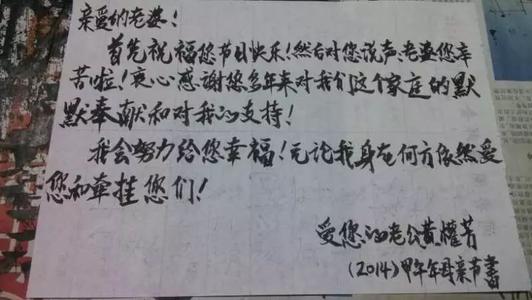 亲爱的老婆！
首先祝福您节日快乐！然后对您说声，老婆您辛
苦啦！衷心感謝您多年来对我们这个家庭的默
默奉献和对我的支持！
我会努力给您幸福！无论我身在何方依然爱
您和牵挂您们！
爱您的老公黄耀芳
(2014)甲午年母亲节書